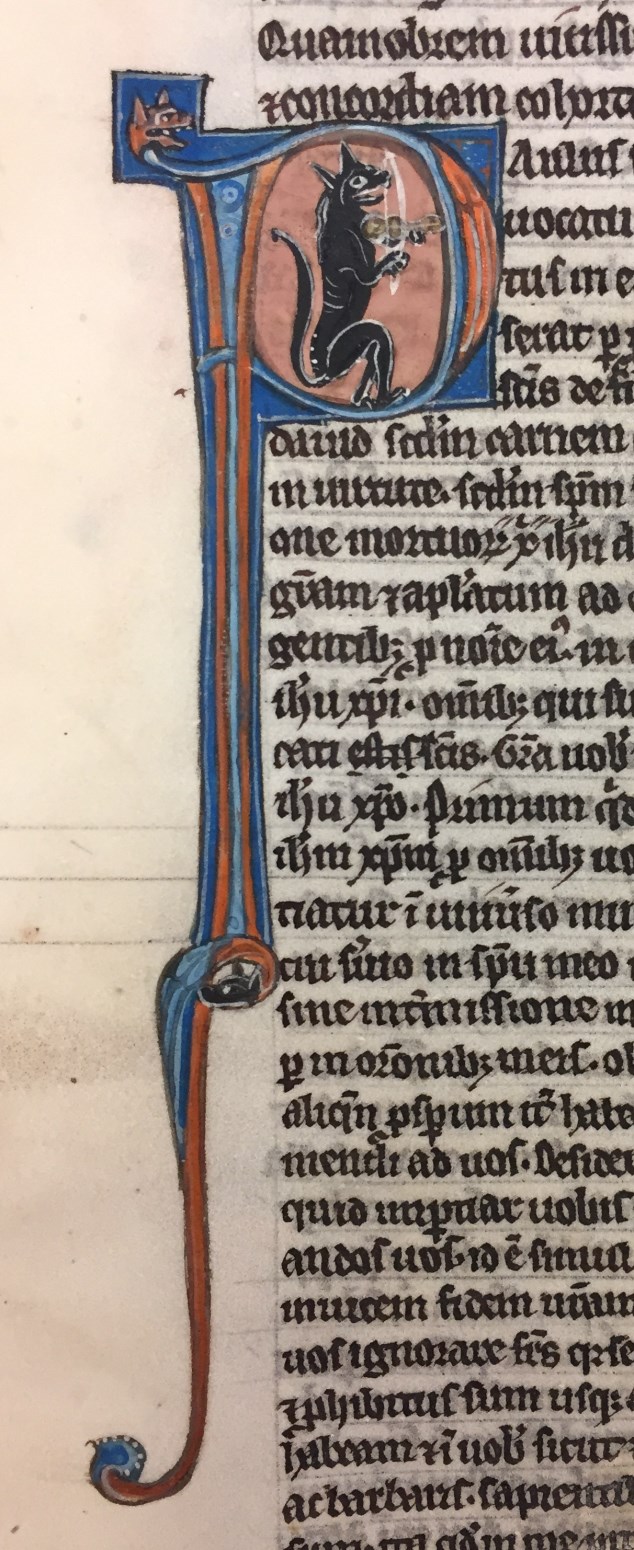 Quamobrem uiriſſi
⁊concordiam cohorta
Aulus
uocatu
tuſ in e
ſerat p̲
ſc̄is de
dauid ſcd̄m carnem
in uirtute. ſcd̄m ſp̄m
one mortuoꝝ ih̄u
gr̄am ⁊ apl̄atum ad
gentibꝫ p noīe eiꝰ. in
ih̄u xp̄i. om̄ibꝫ qui
cati eſtiſ ſc̄is. Gr̄a uob̄
ih̄u xp̄o. Primum qͥde
ih̄m xp̄m ꝑ om̄ibꝫ uo
tiatur ī uniuſo mun
cui ſ̄uio in ſp̄u meo
ſine int̄miſſione m
ꝑ in or̄onibꝫ meiſ. ob
aliq̄n pſpum it̄ habe
ad uoſ. Deſider
quid imꝑtiar uobiſ
andoſ uoſ. id ē ſimul
inuicem fidem
uoſ ignorare fr̄s
⁊phibituſ ſum uſqꝫ
habeam ⁊ ī uob̄ ſicut
ac barbariſ. ſapientib